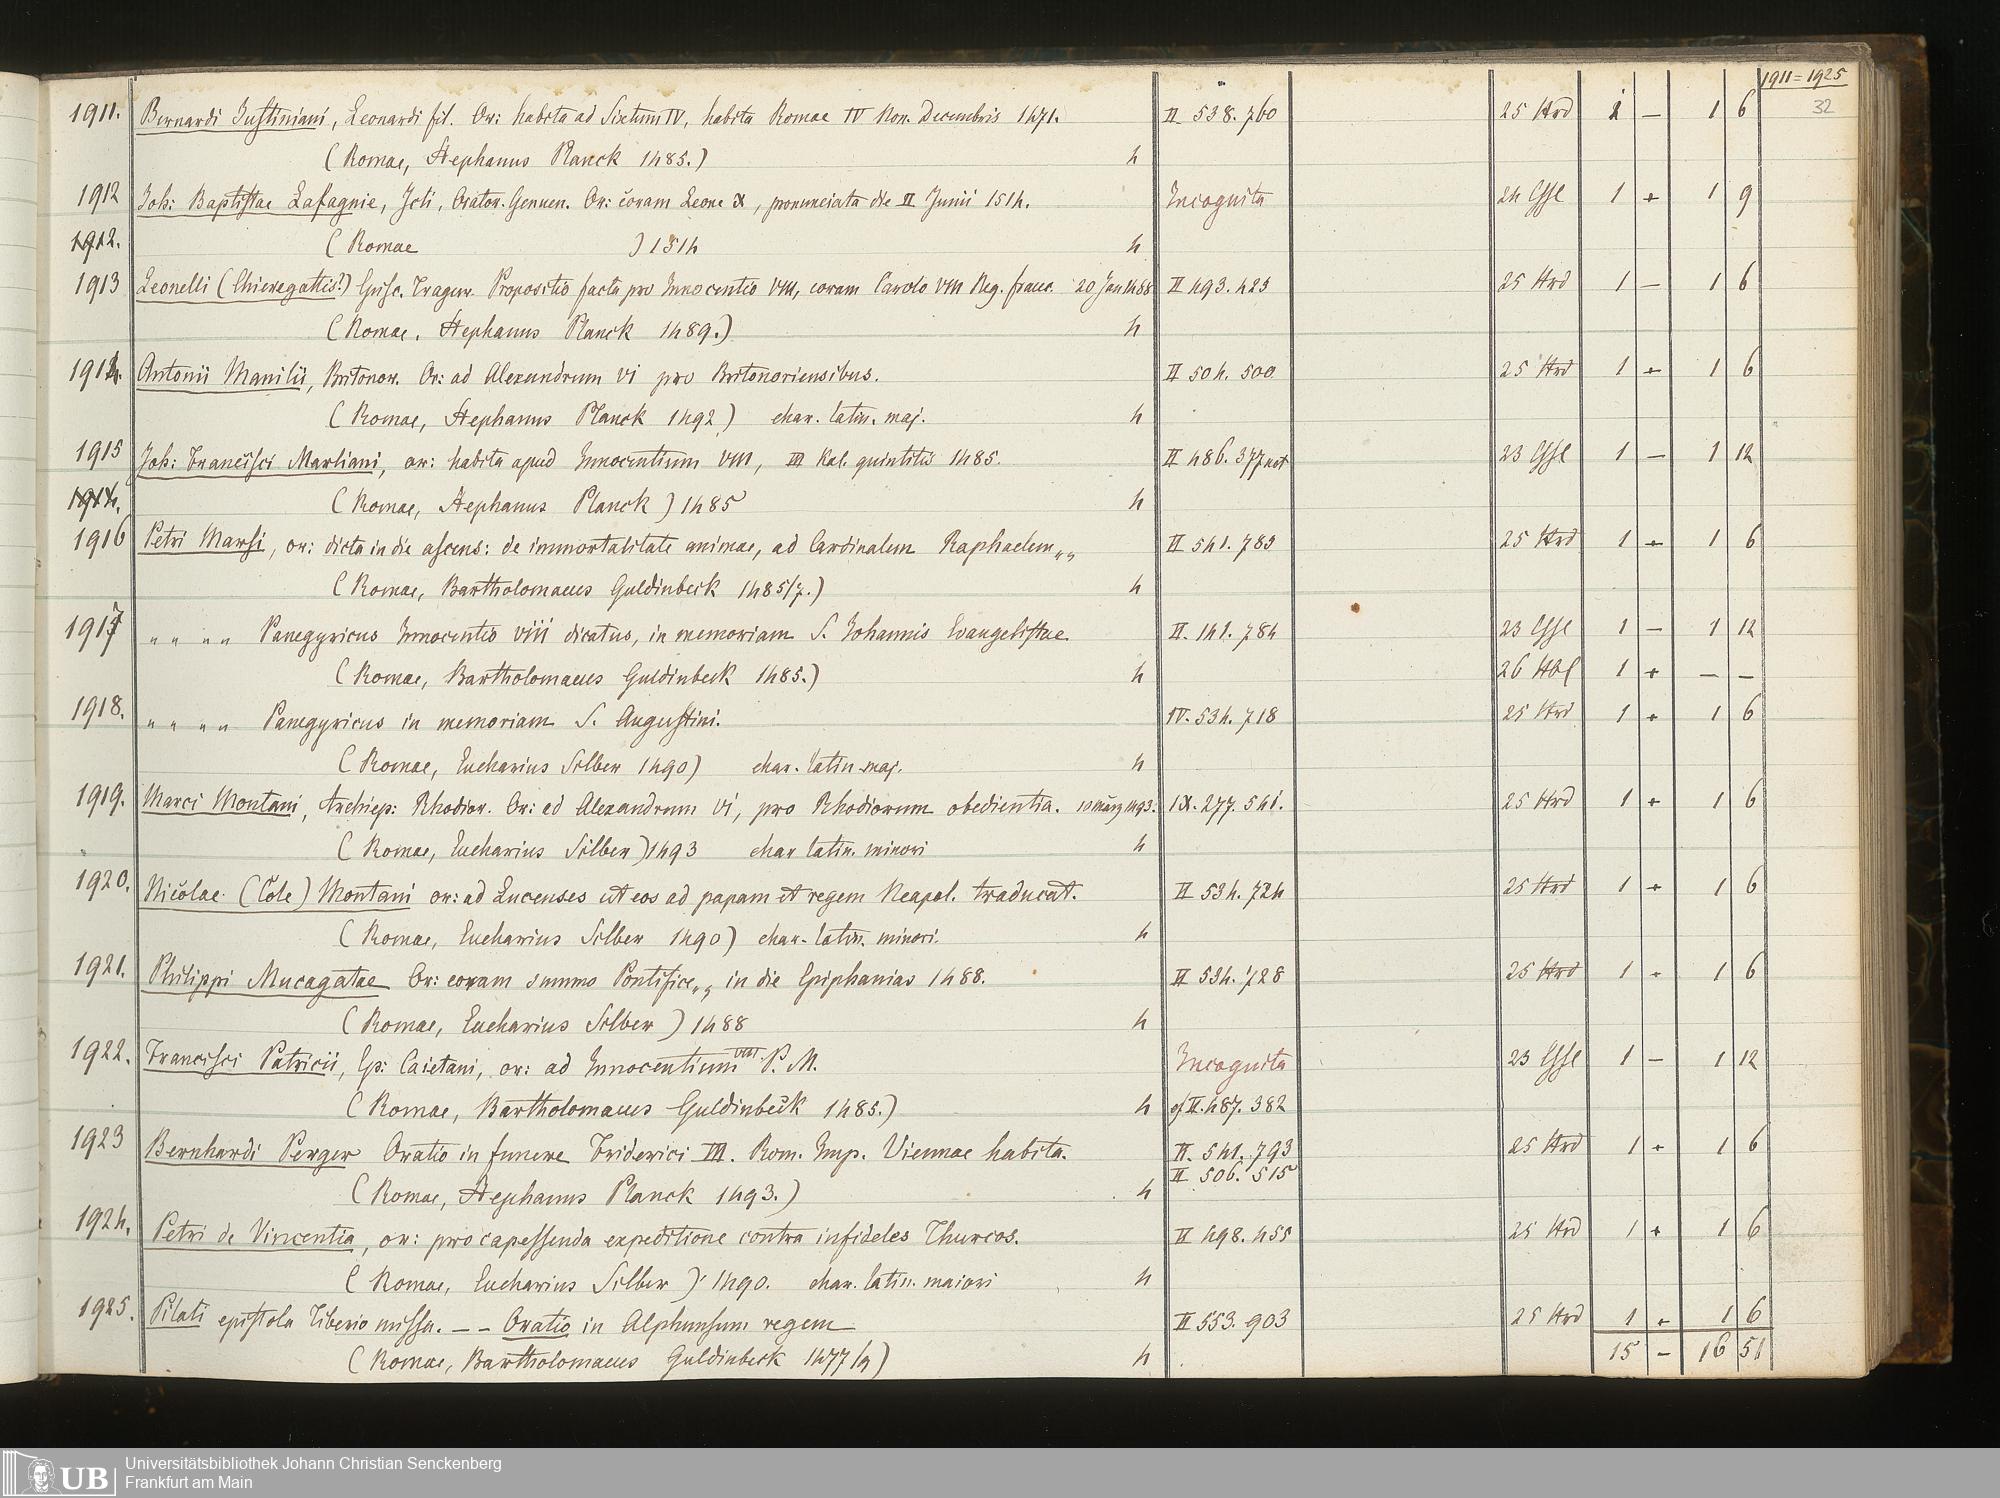 1911 = 1925
32
1911. Bernardi Justiniani, Leonardi fil. Or: habita ad Sixtum IV, habita Romae IV Non. Decembris 1471. II 538. 760 25 Hrd 1 — 1 6
(Romae, Stephanus Planck 1485.) 4
1912 Joh: Baptistae Lafagnie, Jcti, Orator. Genuen. Or: coram Leone X, pronunciata die II Junii 1514. Incognita 24 1 + 1 9
1912. (Romae ) 1514 4
1913 Leonelli (Chieregattis?) Episc. Tragur. Propositio facta pro Innocentio VIII, coram Carolo VIII Reg. franc. 20 Jan 1488 II 493. 423 25 Hrd 1 — 1 6
(Romae, Stephanus Planck 1489.) 4
1914. Antonii Manilii, Britonor. Or: ad Alexandrum VI pro Britonoriensibus. II 504. 500 25 Hrd 1 + 1 6
(Romae, Stephanus Planck 1492) char. latin. maj. 4
1915 Joh: Francisci Marliani, or: habita apud Innocentium VIII, III Kal. quintilis 1485. II 486. 377 not 23 1 — 1 12
1914. (Romae, Stephanus Planck) 1485 4
1916 Petri Marsi, or: dicta in die ascens: de immortalitate animae, ad Cardinalem Raphaelem „„ II 541. 783 25 Hrd 1 + 1 6
(Romae, Bartholomaeus Guldinbeck 1485/7.) 4
1917 „ „ „ „ Panegyricus Innocentio viii dicatus, in memoriam S. Johannis Evangelistae II. 141. 784 23 1 — 1 12
(Romae, Bartholomaeus Guldinbeck 1485.) 4 26 1 + — —
1918. „ „ „ „ Panegyricus in memoriam S. Augustini. IV. 534. 718 25 Hrd 1 + 1 6
(Romae, Eucharius Silber 1490) char. latin. maj. 4
1919. Marci Montani, Archiep: Rhodior. Or: ad Alexandrum VI, pro Rhodiorum obedientia. 10 März 1493. IX. 277. 541. 25 Hrd 1 + 1 6
(Romae, Eucharius Silber) 1493 char latin. minori 4
1920. Nicolae (Cole) Montani or: ad Lucenses ut eos ad papam et regem Neapol. traducat. II 534. 724 25 Hrd 1 + 1 6
(Romae, Eucharius Silber 1490) char. latin. minori. 4
1921. Philippi Mucagatae Or: coram summo Pontifice „„ in die Epiphanias 1488. II 534. 728 25 Hrd 1 + 1 6
(Romae, Eucharius Silber) 1488 4
1922. Francisci Patricii, Ep: Caietani, or: ad Innocentium VIII. P. M. Incognita 23 1 — 1 12
(Romae, Bartholomaeus Guldinbeck 1485.) 4 cf II. 487. 382
1923 Bernhardi Perger Oratio in funere Friderici III. Rom. Imp. Viennae habita. II. 541. 793 25 Hrd 1 + 1 6
II 506. 515
(Romae, Stephanus Planck 1493.) 4
1924. Petri de Vincentia, or: pro capessenda expeditione contra infideles Thurcos. II 498. 455 25 Hrd 1 + 1 6
(Romae, Eucharius Silber) 1490. char. latin. maiori 4
1925. Pilati epistola Tiberio missa. — — Oratio in Alphunsum regem II 553. 903 25 Hrd 1 + 1 6
(Romae, Bartholomaeus Guldinbeck 1477/9) 4 15 — 16 51
UB Universitätsbibliothek Johann Christian Senckenberg
Frankfurt am Main